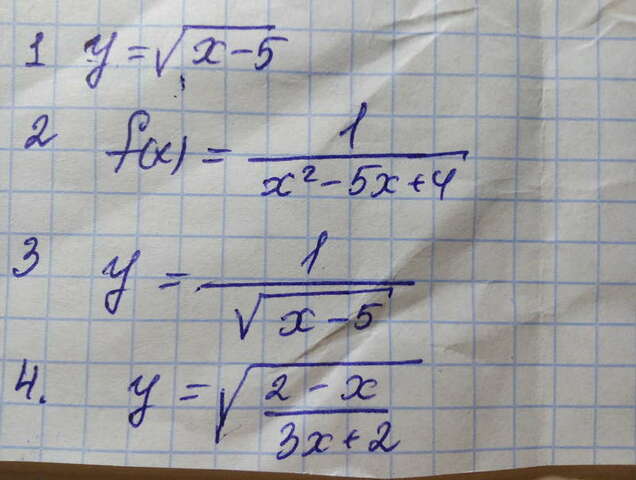 1 y = √(x-5)
2 f(x) = 1/(x²-5x+4)
3 y = 1/√(x-5)
4. y = √((2-x)/(3x+2))